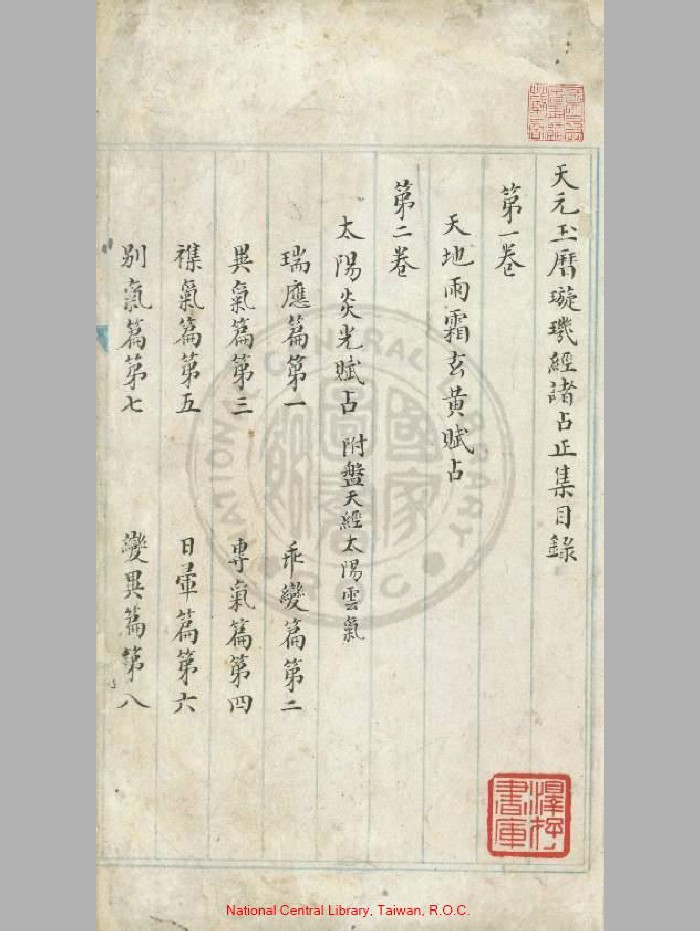 天元玉曆璇璣經諸占正集目錄
第一卷
天地雨霜玄黃賦占
第二卷
太陽炎光賦占 附盤天經太陽雲氣
瑞應篇第一 乖變篇第二
異氣篇第三 專氣篇第四
襍氣篇第五 日暈篇第六
別氣篇第七 變異篇第八
澤存書庫
國家圖書館
NATIONAL CENTRAL LIBRARY
R.O.C
National Central Library, Taiwan, R.O.C.